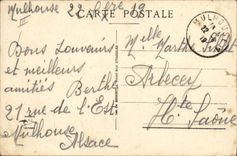 Mulhouse 22 Obre 19
CARTE POSTALE
MULHOUSE
Bons Souvenirs
et meilleurs
amitiés Berthe
21 rue de l'Est
Mulhouse
Alsace
Melle
Arbecey
Hte Saône